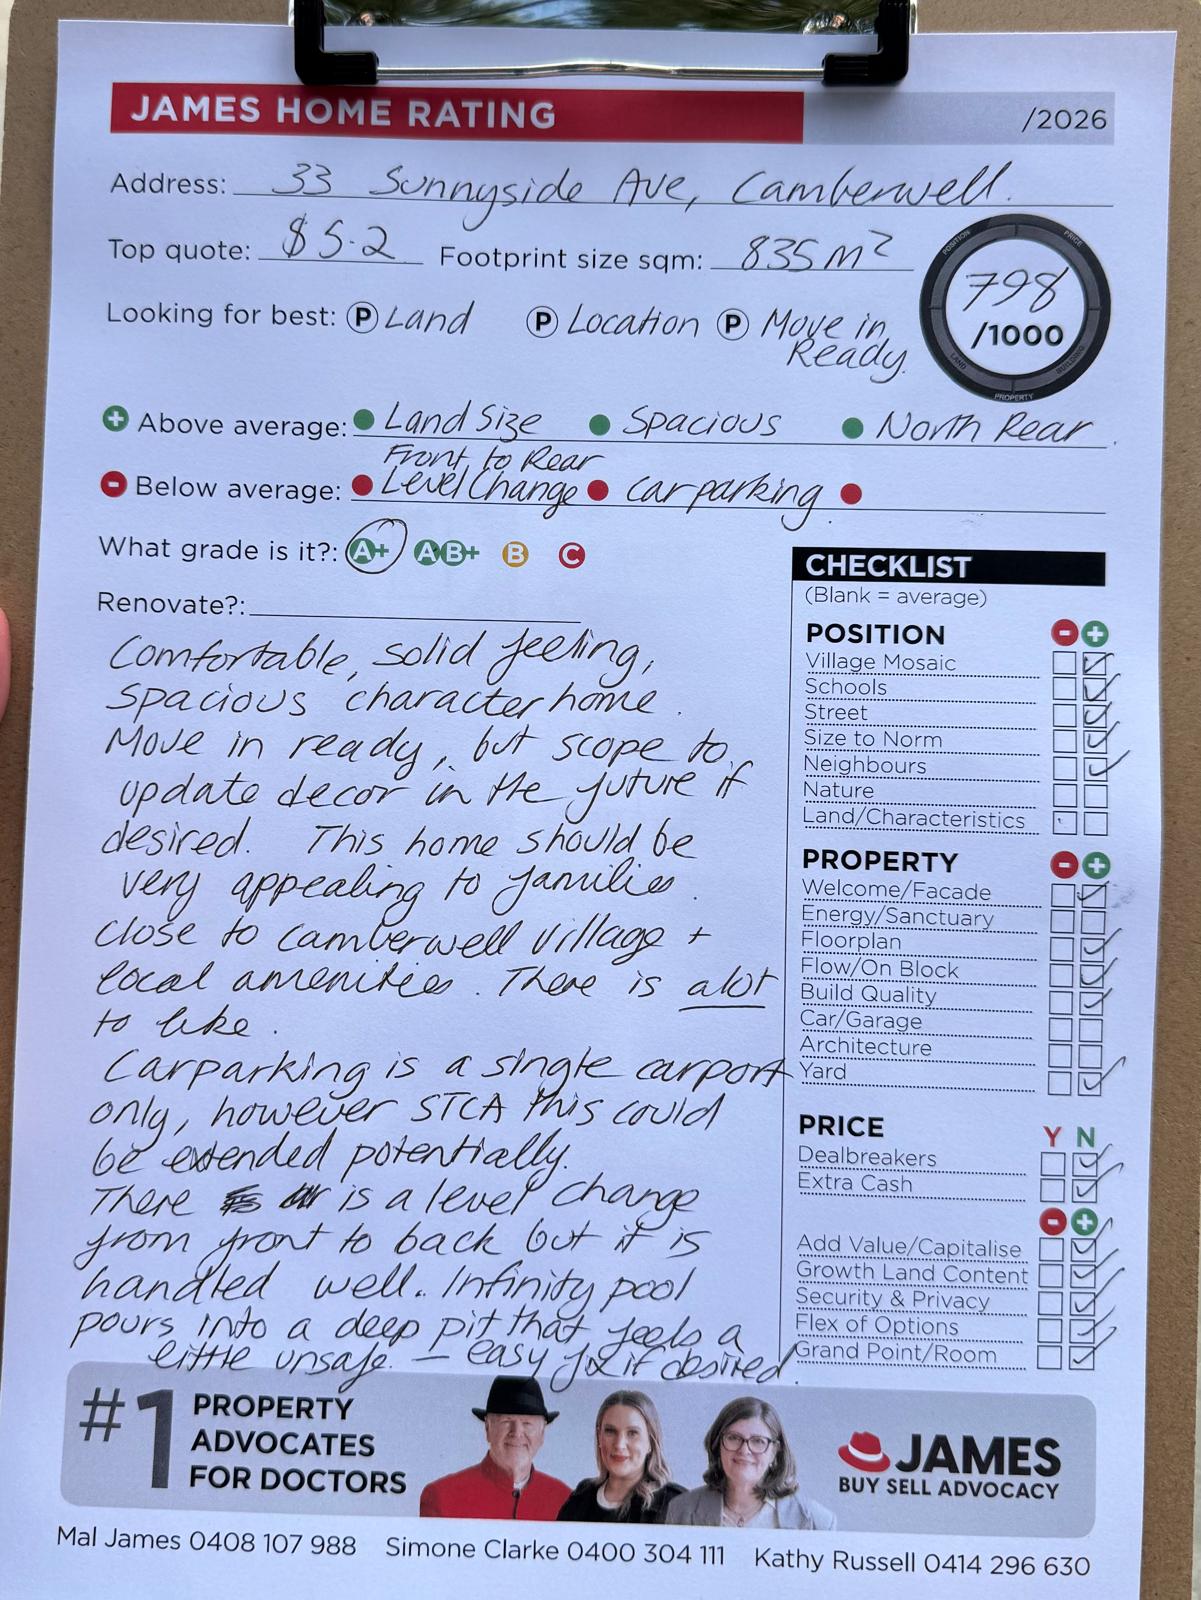 JAMES HOME RATING /2026
Address: 33 Sunnyside Ave, Camberwell.
Top quote: $5.2 Footprint size sqm: 835m²
POSITION PRICE BUILDING PROPERTY LAND
798
/1000
Looking for best: P Land P Location P Move in
Ready.
+ Above average: Land Size Spacious North Rear.
Front to Rear
- Below average: Level Change carparking.
What grade is it?: A+ AB+ B C
Renovate?:
Comfortable, solid feeling,
spacious character home.
Move in ready, but scope to
update decor in the future if
desired. This home should be
very appealing to families.
Close to Camberwell Village +
local amenities. There is alot
to like.
Carparking is a single carport
only, however STCA this could
be extended potentially.
There is a level change
from front to back but it is
handled well. Infinity pool
pours into a deep pit that feels a
little unsafe. — easy fix if desired.
CHECKLIST
(Blank = average)
POSITION - +
Village Mosaic
Schools
Street
Size to Norm
Neighbours
Nature
Land/Characteristics
PROPERTY - +
Welcome/Facade
Energy/Sanctuary
Floorplan
Flow/On Block
Build Quality
Car/Garage
Architecture
Yard
PRICE Y N
Dealbreakers
Extra Cash
- +
Add Value/Capitalise
Growth Land Content
Security & Privacy
Flex of Options
Grand Point/Room
#1 PROPERTY
ADVOCATES
FOR DOCTORS
JAMES
BUY SELL ADVOCACY
Mal James 0408 107 988 Simone Clarke 0400 304 111 Kathy Russell 0414 296 630